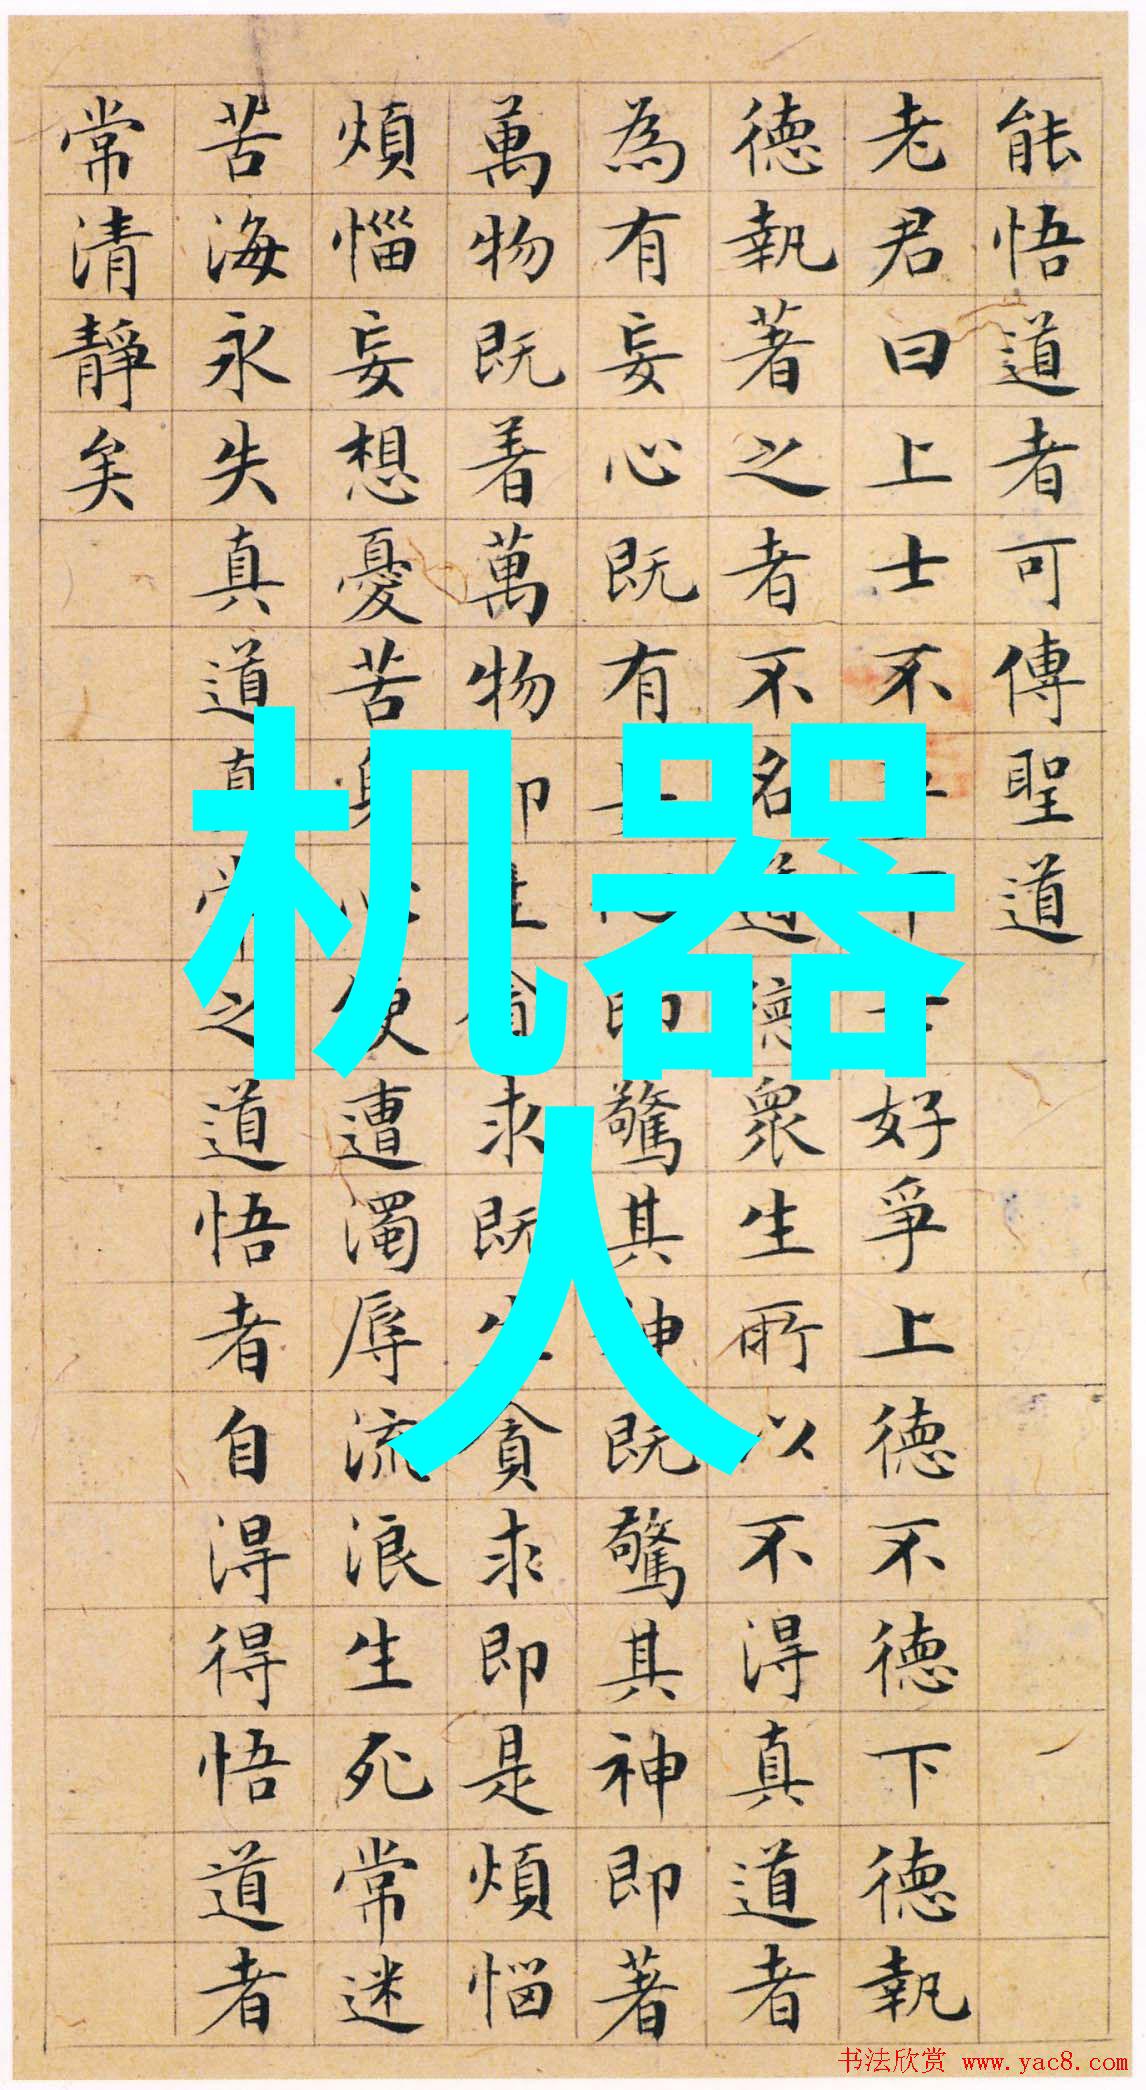 能悟道者可傳聖道
老君曰上士不爭下士好爭上德不德下德執
德執著之者不名道德眾生所以不得真道者
為有妄心既有妄心即驚其神既驚其神即著
萬物既着萬物即生貪求既生貪求即是煩惱
煩惱妄想憂苦身心便遭濁辱流浪生死常迷
苦海永失真道真常之道悟者自得得悟道者
常清靜矣
机器
人
书法欣赏 www.yac8.com